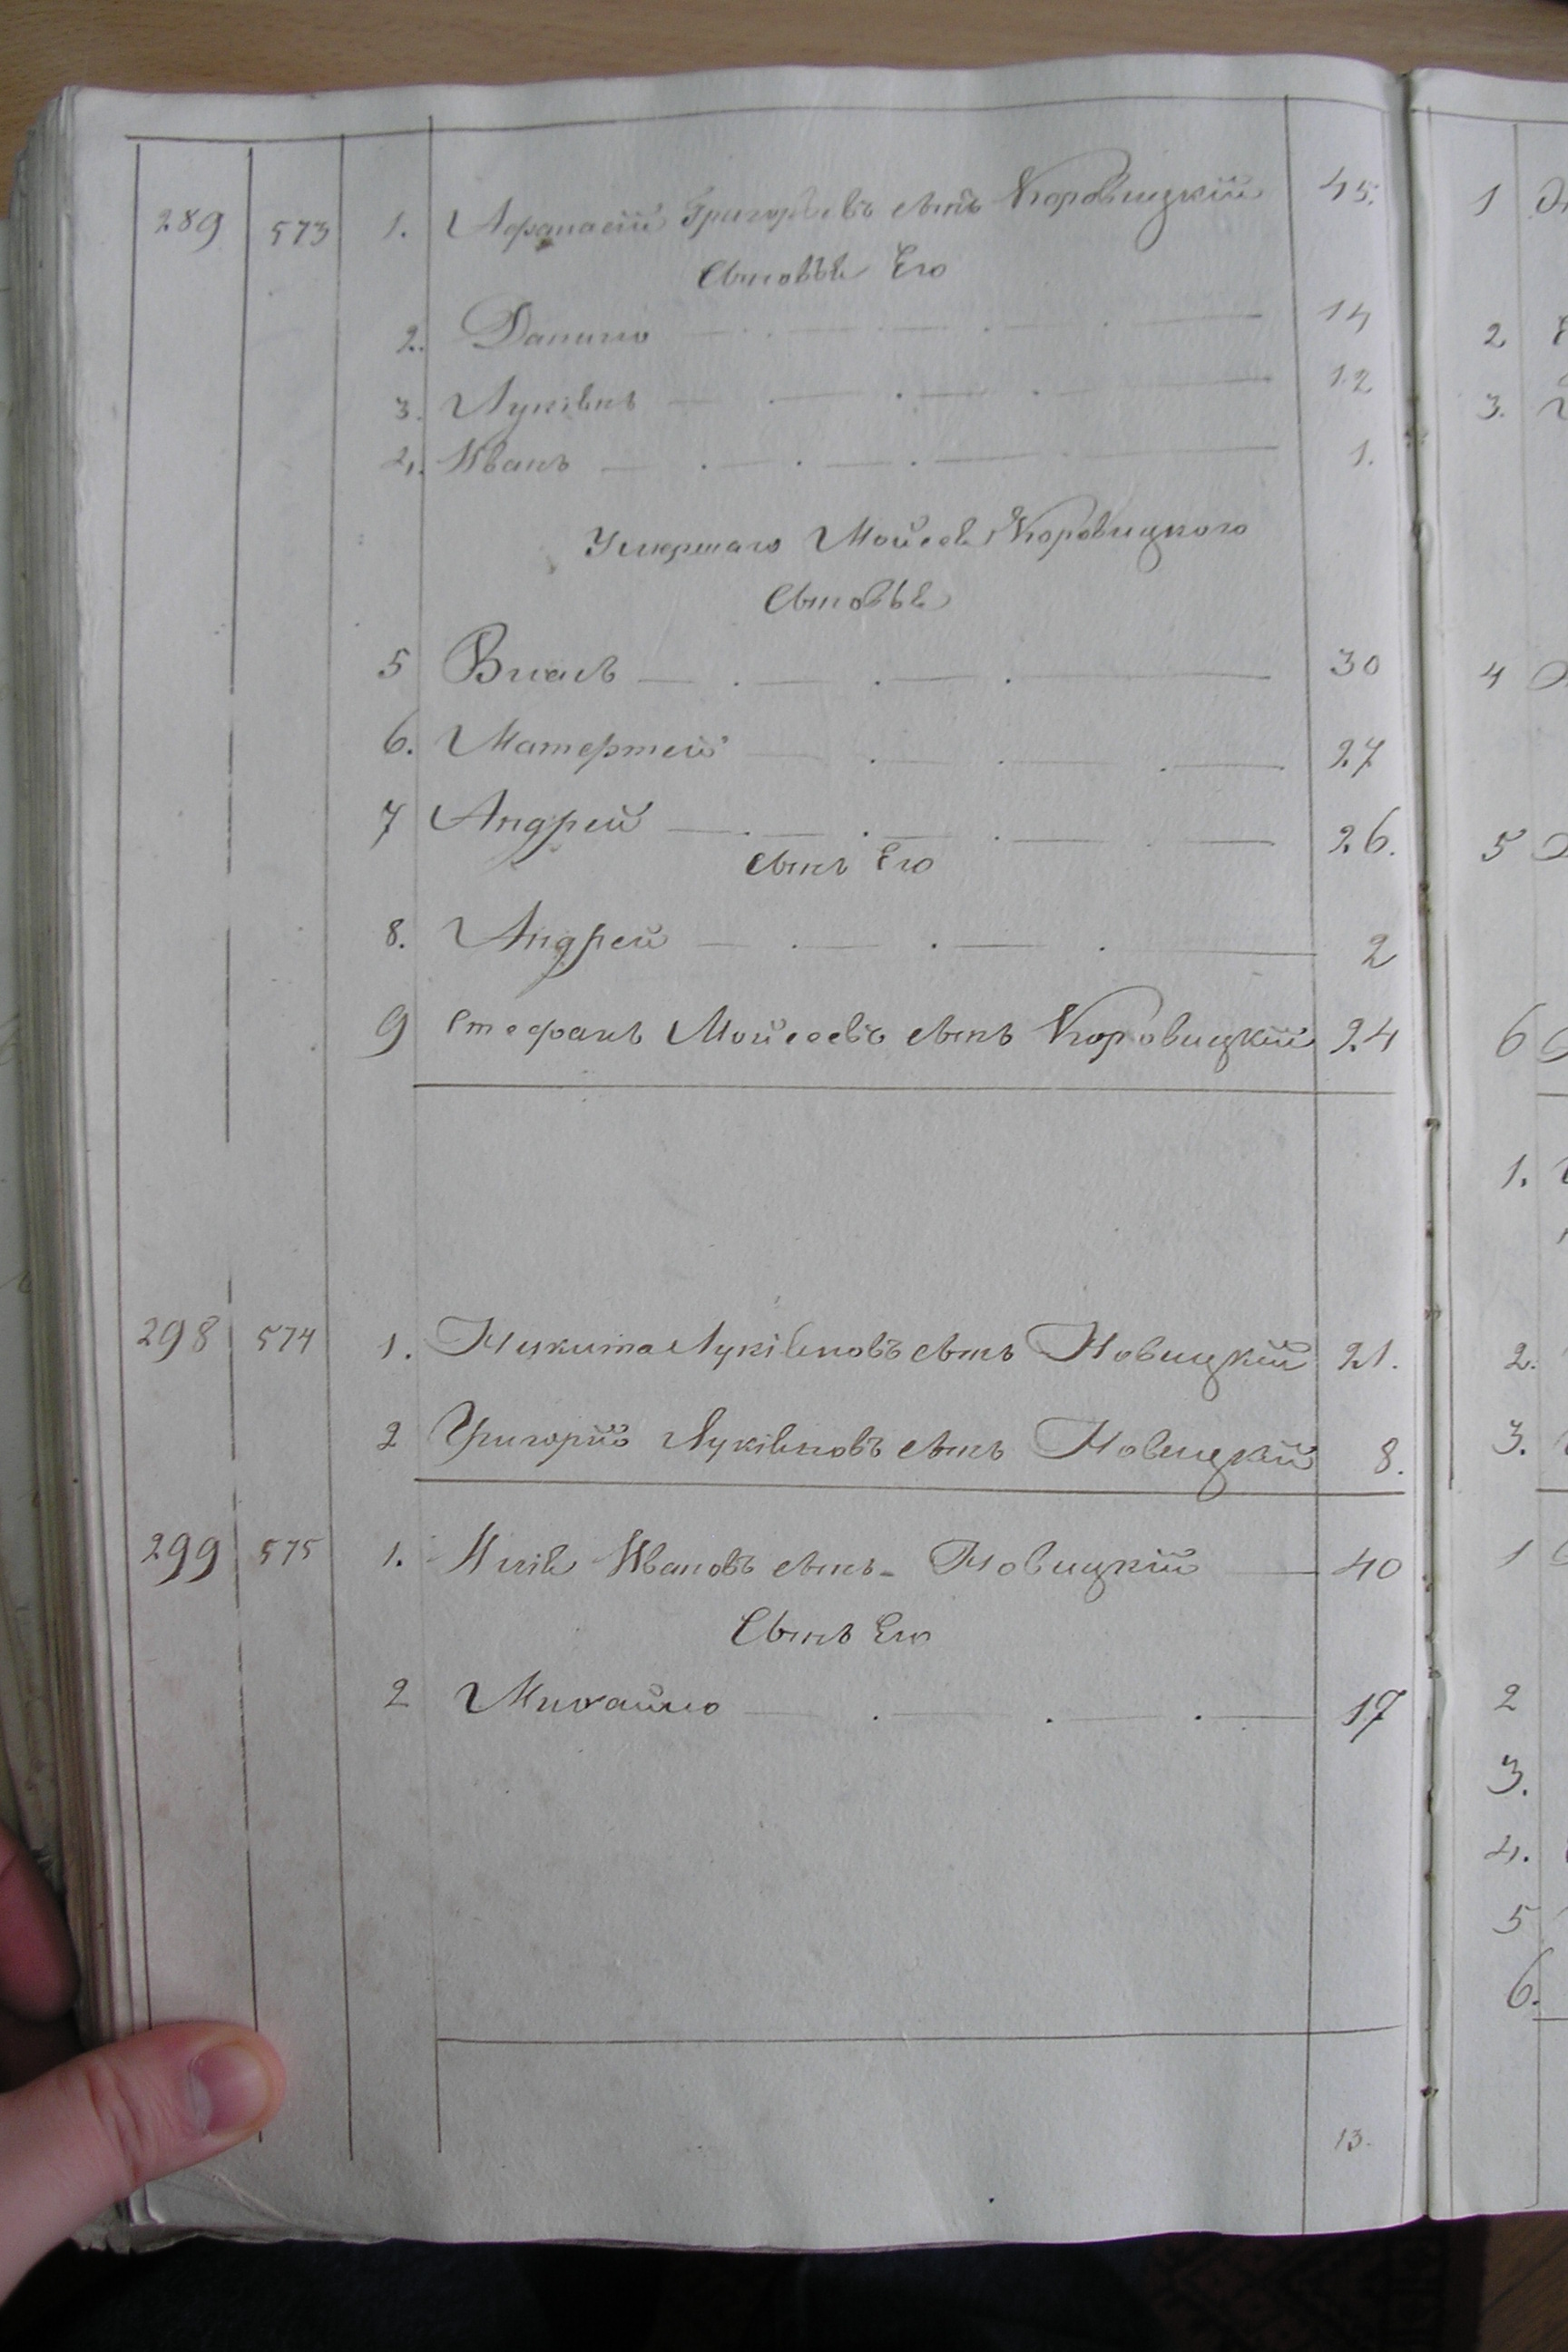 289 573 1. Афанасій Григорьевъ сынъ Коровицкій 45.
Сыновья Его
2. Данило 14
3. Лукіянъ 12
4. Иванъ 1.
Умершаго Мойсея Коровицкого
Сыновья
5 Власъ 30
6. 27
7 Андрей 26.
Сынъ Его
8. Андрей 2
9 Стефанъ Мойсеевъ сынъ Коровицкій 24
298 574 1. Никита Лукіяновъ сынъ Новицкій 21.
2 Григорій Лукіяновъ сынъ Новицкій 8.
299 575 1. Илія Ивановъ сынъ Новицкій 40
Сынъ Его
2 Михайло 17
13.
1
2
3.
4
5
6
1.
2.
3.
1
2
3.
4.
5
6.